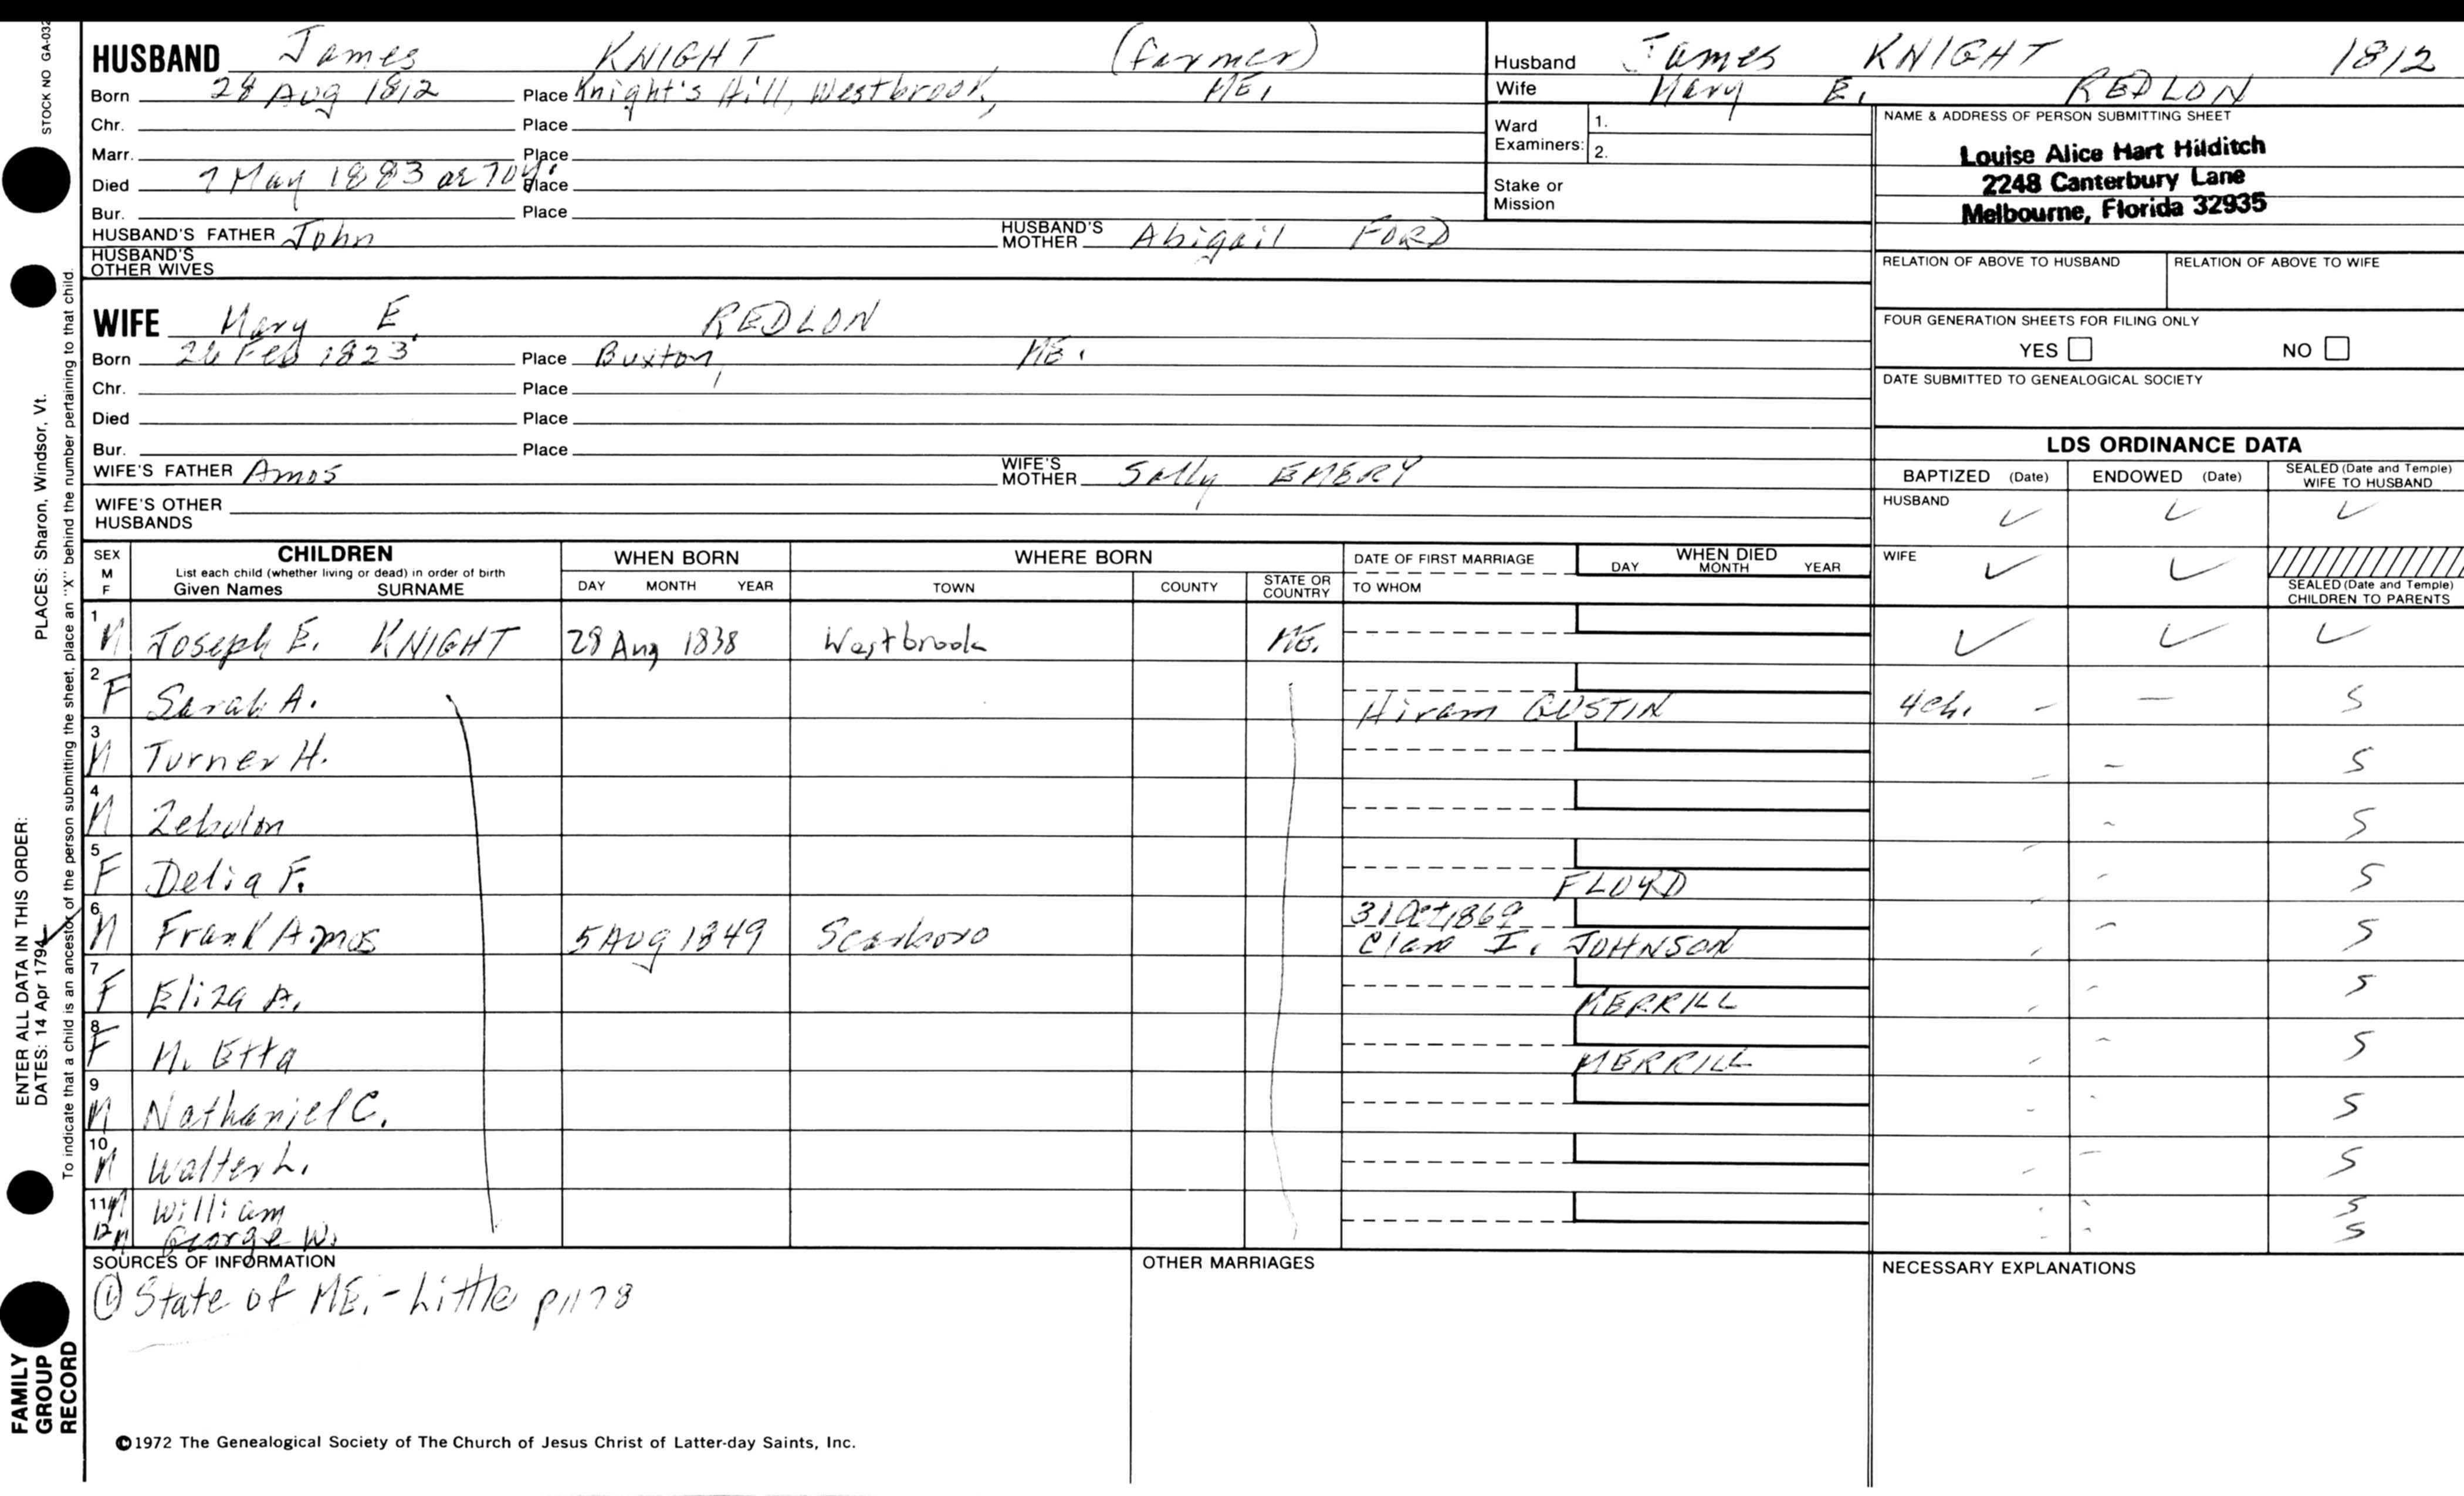 STOCK NO GA-032
HUSBAND James KNIGHT (farmer)
Born 28 Aug 1812 Place Knight's Hill, Westbrook, ME.
Chr. Place
Marr. Place
Died 7 May 1883 ae 70y. Place
Bur. Place
HUSBAND'S FATHER John HUSBAND'S MOTHER Abigail FORD
HUSBAND'S OTHER WIVES
WIFE Mary E. REDLON
Born 26 Feb 1823 Place Buxton, ME.
Chr. Place
Died Place
Bur. Place
WIFE'S FATHER Amos WIFE'S MOTHER Sally EMERY
WIFE'S OTHER HUSBANDS
Husband James KNIGHT 1812
Wife Mary E. REDLON
Ward Examiners: 1.
2.
Stake or Mission
NAME & ADDRESS OF PERSON SUBMITTING SHEET
Louise Alice Hart Hilditch
2248 Canterbury Lane
Melbourne, Florida 32935
RELATION OF ABOVE TO HUSBAND RELATION OF ABOVE TO WIFE
FOUR GENERATION SHEETS FOR FILING ONLY
YES NO
DATE SUBMITTED TO GENEALOGICAL SOCIETY
LDS ORDINANCE DATA
BAPTIZED (Date) ENDOWED (Date) SEALED (Date and Temple) WIFE TO HUSBAND
HUSBAND ✓ ✓ ✓
WIFE ✓ ✓
SEALED (Date and Temple) CHILDREN TO PARENTS
SEX M F CHILDREN WHEN BORN WHERE BORN DATE OF FIRST MARRIAGE WHEN DIED
List each child (whether living or dead) in order of birth
Given Names SURNAME DAY MONTH YEAR TOWN COUNTY STATE OR COUNTRY TO WHOM DAY MONTH YEAR
1 M Joseph E. KNIGHT 28 Aug 1838 Westbrook ME. ✓ ✓ ✓
2 F Sarah A. Hiram GUSTIN 4ch. - - S
3 M Turner H. - - S
4 M Zebulon - S
5 F Delia F. FLOYD - - S
6 M Frank Amos 5 Aug 1849 Scarboro 31 Oct 1869 Clara I. JOHNSON - - S
7 F Eliza A. MERRILL - - S
8 F M. Etta MERRILL - - S
9 M Nathaniel C. - - S
10 M Walter L. - - S
11 M William - - S
12 M George W. - - S
SOURCES OF INFORMATION
① State of ME. - Little p1178
OTHER MARRIAGES
NECESSARY EXPLANATIONS
©1972 The Genealogical Society of The Church of Jesus Christ of Latter-day Saints, Inc.
ENTER ALL DATA IN THIS ORDER:
DATES: 14 Apr 1794 PLACES: Sharon, Windsor, Vt.
To indicate that a child is an ancestor of the person submitting the sheet, place an "X" behind the number pertaining to that child.
FAMILY
GROUP
RECORD